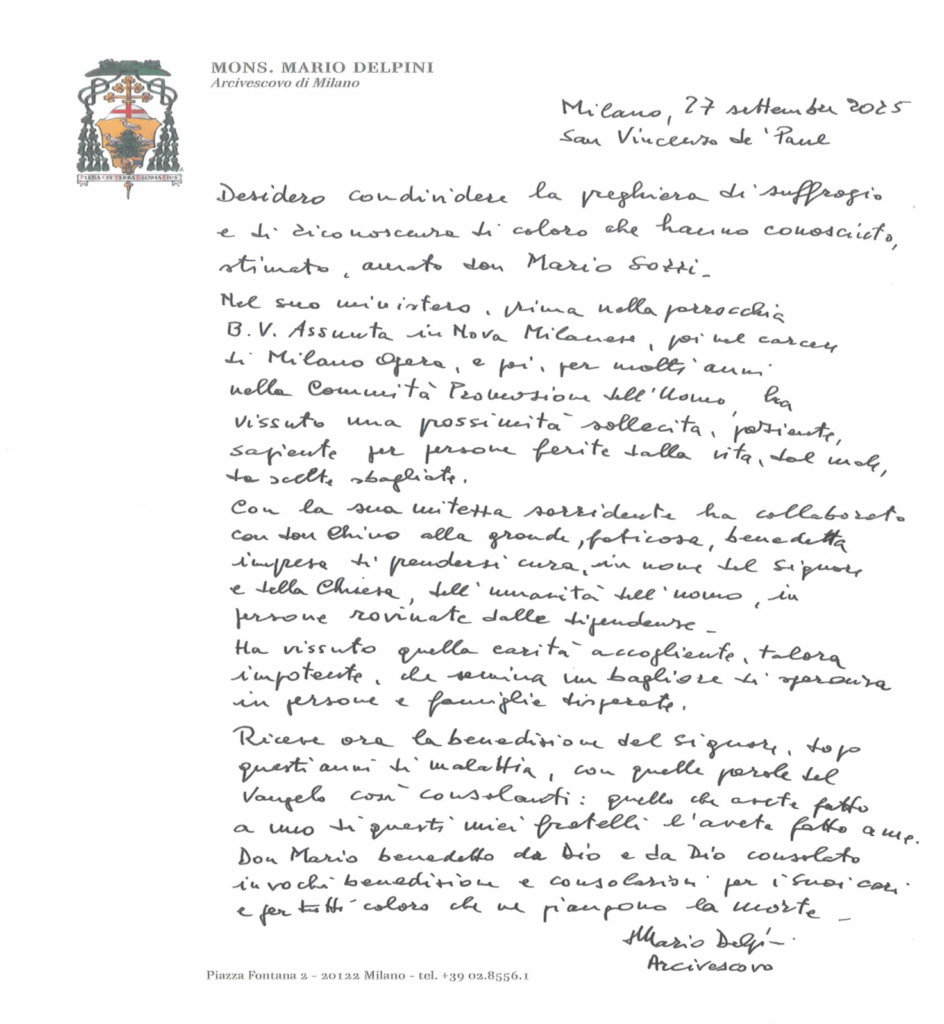 MONS. MARIO DELPINI
Arcivescovo di Milano
Milano, 27 settembre 2025
San Vincenzo de' Paul
Desidero condividere la preghiera di suffragio
e di riconoscenza di coloro che hanno conosciuto,
stimato, amato don Mario Sozzi.
Nel suo ministero, prima nella parrocchia
B.V. Assunta in Nova Milanese, poi nel carcere
di Milano Opera, e poi, per molti anni
nella Comunità Promozione dell'Uomo, ha
vissuto una prossimità sollecita, paziente,
sapiente per persone ferite dalla vita, dal male,
da scelte sbagliate.
Con la sua mitezza sorridente ha collaborato
con don Chino alla grande, faticosa, benedetta
impresa di prendersi cura, in nome del Signore
e della Chiesa, dell'umanità dell'uomo, in
persone rovinate dalle dipendenze -
Ha vissuto quella carità accogliente, talora
impotente, che semina un bagliore di speranza
in persone e famiglie disperate.
Riceve ora la benedizione del Signore, dopo
questi anni di malattia, con quelle parole del
Vangelo così consolanti: quello che avete fatto
a uno di questi miei fratelli l'avete fatto a me.
Don Mario benedetto da Dio e da Dio consolato
invochi benedizione e consolazioni per i suoi cari
e per tutti coloro che ne piangono la morte -
+Mario Delpini
Arcivescovo
Piazza Fontana 2 - 20122 Milano - tel. +39 02.8556.1